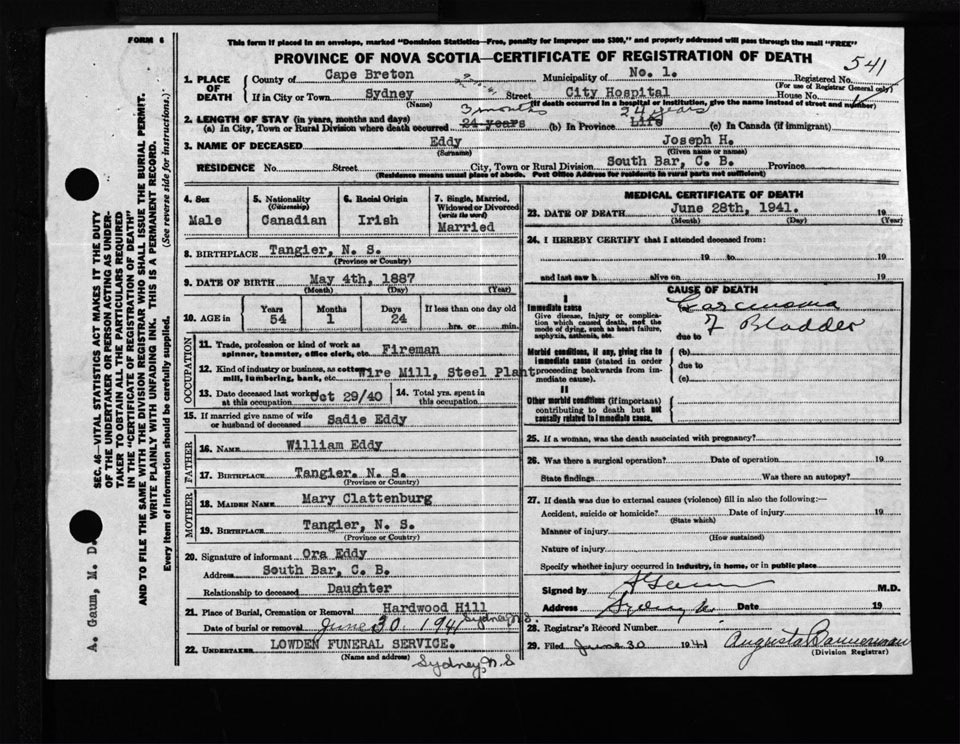 FORM 6
This form if placed in an envelope, marked "Dominion Statistics—Free, penalty for improper use $300," and properly addressed will pass through the mail "FREE"
PROVINCE OF NOVA SCOTIA—CERTIFICATE OF REGISTRATION OF DEATH
541
1. PLACE OF DEATH
County of Cape Breton Municipality of No. 1. Registered No.
(For use of Registrar General only)
If in City or Town Sydney Street City Hospital House No.
(Name) (If death occurred in a hospital or institution, give the name instead of street and number)
2. LENGTH OF STAY (in years, months and days)
3 months 24 years
(a) In City, Town or Rural Division where death occurred 24 years (b) In Province Life (c) In Canada (if immigrant)
3. NAME OF DECEASED Eddy Joseph H.
(Surname) (Given name or names)
RESIDENCE No. Street City, Town or Rural Division South Bar, C. B. Province
(Residence means usual place of abode. Post Office Address for residents in rural parts not sufficient)
4. Sex
Male
5. Nationality
(Citizenship)
Canadian
6. Racial Origin
Irish
7. Single, Married, Widowed or Divorced
(write the word)
Married
8. BIRTHPLACE Tangier, N. S.
(Province or Country)
9. DATE OF BIRTH May 4th, 1887
(Month) (Day) (Year)
10. AGE in
Years Months Days If less than one day old
54 1 24 hrs. or min.
OCCUPATION
11. Trade, profession or kind of work as
spinner, teamster, office clerk, etc. Fireman
12. Kind of industry or business, as cotton
mill, lumbering, bank, etc. Wire Mill, Steel Plant
13. Date deceased last worked
at this occupation Oct 29/40
14. Total yrs. spent in
this occupation
15. If married give name of wife
or husband of deceased Sadie Eddy
FATHER
16. NAME William Eddy
17. BIRTHPLACE Tangier. N. S.
(Province or Country)
MOTHER
18. MAIDEN NAME Mary Clattenburg
19. BIRTHPLACE Tangier, N. S.
(Province or Country)
20. Signature of informant Ora Eddy
Address South Bar, C. B.
Relationship to deceased Daughter
21. Place of Burial, Cremation or Removal Hardwood Hill
Sydney N.S.
Date of burial or removal June 30, 1941
22. UNDERTAKER LOWDEN FUNERAL SERVICE.
(Name and address) Sydney, N.S
MEDICAL CERTIFICATE OF DEATH
23. DATE OF DEATH June 28th, 1941. 19
(Month) (Day) (Year)
24. I HEREBY CERTIFY that I attended deceased from:
19 to 19
and last saw h alive on 19
CAUSE OF DEATH
I
Immediate cause
Give disease, injury or complication which caused death, not the mode of dying, such as heart failure, asphyxia, asthenia, etc.
(a) Carcinoma
of Bladder
due to
Morbid conditions, if any, giving rise to immediate cause (stated in order proceeding backwards from immediate cause).
(b)
due to
(c)
II
Other morbid conditions (if important) contributing to death but not causally related to immediate cause.
25. If a woman, was the death associated with pregnancy?
26. Was there a surgical operation? Date of operation 19
State findings Was there an autopsy?
27. If death was due to external causes (violence) fill in also the following:—
Accident, suicide or homicide? Date of injury 19
(State which)
Manner of injury
(How sustained)
Nature of injury
Specify whether injury occurred in industry, in home, or in public place
Signed by M.D.
Address Sydney Date 19
28. Registrar's Record Number
29. Filed June 30 1941 Augusta Bannerman
(Division Registrar)
A. Gaum, M. D.
SEC. 46—VITAL STATISTICS ACT MAKES IT THE DUTY
OF THE UNDERTAKER OR PERSON ACTING AS UNDERTAKER TO OBTAIN ALL THE PARTICULARS REQUIRED
IN THE "CERTIFICATE OF REGISTRATION OF DEATH"
AND TO FILE THE SAME WITH THE DIVISION REGISTRAR WHO SHALL ISSUE THE BURIAL PERMIT.
WRITE PLAINLY WITH UNFADING INK. THIS IS A PERMANENT RECORD.
Every item of information should be carefully supplied. (See reverse side for instructions.)